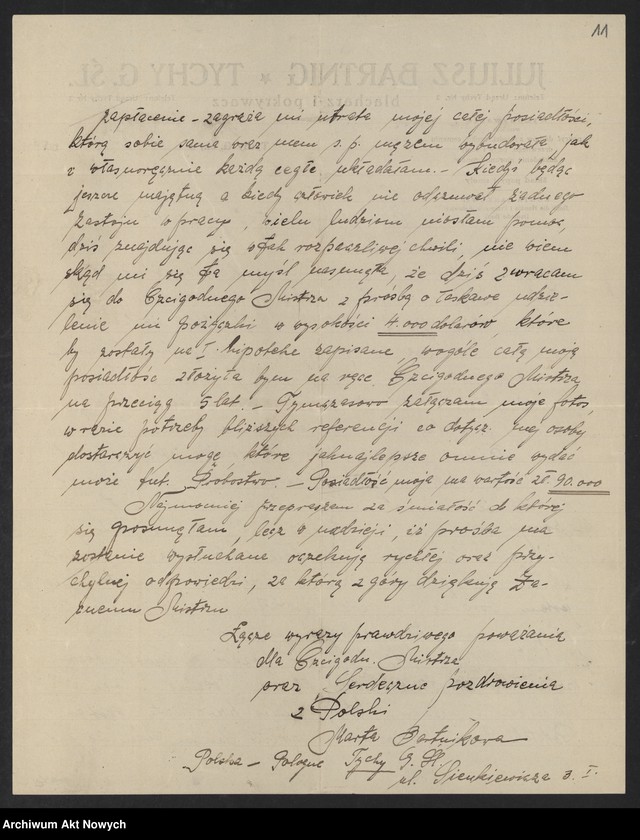 11
JULIUSZ BARTNIG * TYCHY G. ŚL.
blacharz i pokrywacz
zapłacenie – zagraża mi utrata mojej całej posiadłości,
którą sobie sama wraz mem ś. p. mężem wybudorała, jak
i własnoręcznie każdą cegłę układałam. – Kiedyś będąc
jeszcze majętną a kiedy człowiek nie odczuwał żadnego
zastoju w pracy, wielu ludziom niosłam pomoc,
dziś znajdując się w tak rozpaczliwej chwili, nie wiem
skąd mi się ta myśl nasunęła, że dziś zwracam
się do Czcigodnego Mistrza z prośbą o łaskawe udzie-
lenie mi pożyczki w wysokości 4.000 dolarów, które
by zostały na I. hipotekę zapisane, wogóle całą moją
posiadłość złożyła bym na ręce Czcigodnego Mistrza,
na przeciąg 5 lat. – Tymczasowo załączam moje fotos,
w razie potrzeby bliższych referencji co dotycz. mej osoby
dostarczyć mogę które jaknajlepsze o mnie wydać
może tut. Probostwo. – Posiadłość moja ma wartość zł. 90.000
Najmocniej przepraszam za śmiałość do której
się posunęłam, lecz w nadzieji, iż prośba ma
zostanie wysłuchane oczekują rychłej oraz przy-
chylnej odpowiedzi, za którą z góry dziękują Za-
cnemu Mistrzu
Łącze wyrazy prawdziwego poważania
dla Czcigodn. Mistrza
oraz serdeczne pozdrowienia
z Polski
Marta Bartnikowa
Polska – Pologne Tychy G. Śl.
ul. Sienkiewicza 3. I.
Archiwum Akt Nowych